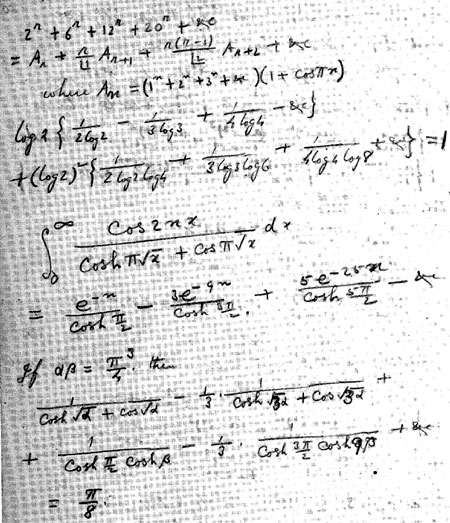 2ⁿ + 6ⁿ + 12ⁿ + 20ⁿ + &c
= Aₙ + n/⌊1 Aₙ₊₁ + n(n-1)/⌊2 Aₙ₊₂ + &c
where Aₙ = (1ⁿ + 2ⁿ + 3ⁿ + &c)(1 + cos πn)
log 2 { 1/(2 log 2) - 1/(3 log 3) + 1/(4 log 4) - &c }
+ (log 2)² { 1/(2 log 2 log 4) + 1/(3 log 3 log 6) + 1/(4 log 4 log 8) + &c } = 1
∫₀^∞ cos 2nx / (cosh π√x + cos π√x) dx
= e⁻ⁿ/cosh π/2 - 3e⁻⁹ⁿ/cosh 3π/2 + 5e⁻²⁵ⁿ/cosh 5π/2 - &c
If αβ = π³/4 then
1/(cosh √α + cos √α) - 1/3 · 1/(cosh √3α + cos √3α) +
+ 1/(cosh π/2 cosh β) - 1/3 · 1/(cosh 3π/2 cosh 9β) + &c
= π/8.